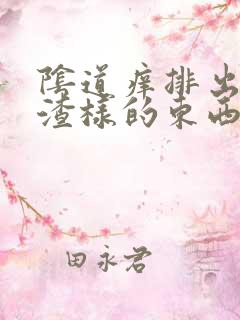 陰道痒排出
渣樣的東西
田永君